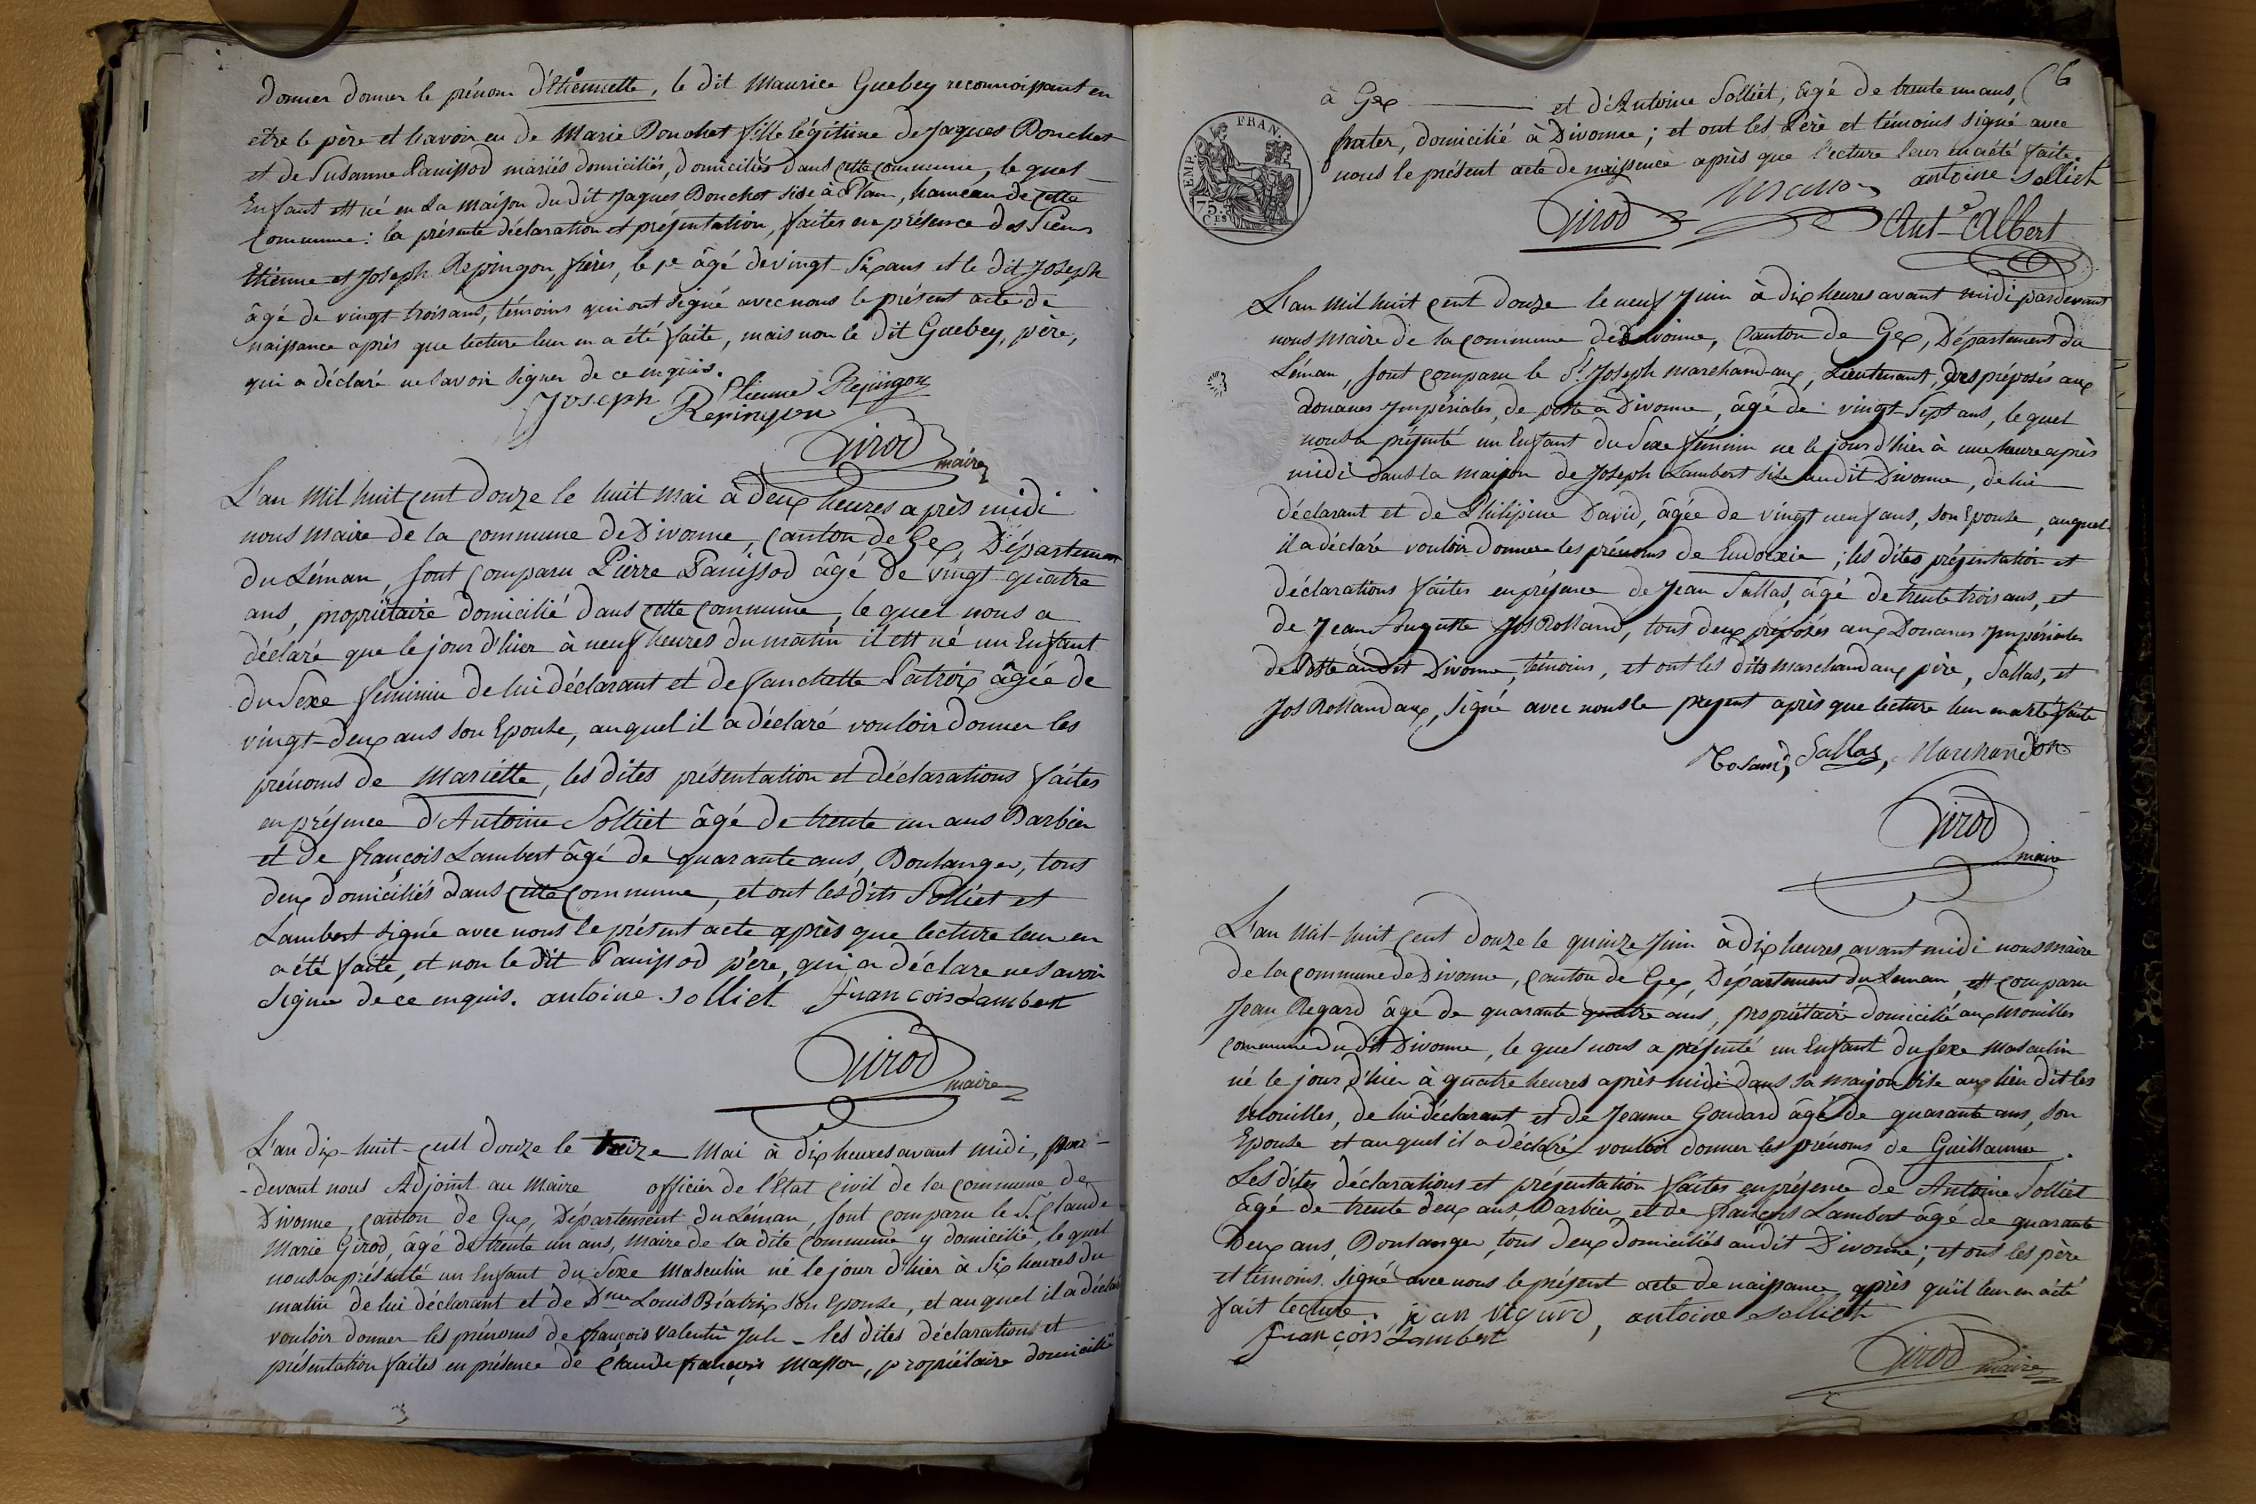 donner donner le prénom d'Etiennette, le dit Maurice Guebey reconnoissant en
etre le père et l'avoir eu de Marie Bouchet fille légitime de Jaques Bouchet
et de Susanne Panissod mariés domiciliés, domiciliés dans cette commune, le quel
Enfant est né en La maison du dit Jaques Bouchet sise à Plan, hameau de cette
Commune: la présente déclaration et présentation, faites en présence des Siens
Etienne et Joseph Repingon, frères, le 1er âgé de vingt-six ans et le dit Joseph
âgé de vingt trois ans, témoins qui ont signé avec nous le présent acte de
naissance après que lecture leur en a été faite, mais non le dit Guebey, père,
qui a déclaré ne savoir signer de ce enquis.
Etienne Repingon
Joseph Repingon
Girod maire
L'an Mil huit cent douze le huit mai à deux heures après midi
nous Maire de la commune de Divonne, canton de Gex, Département
du Léman, sont comparu Pierre Panissod âgé de vingt quatre
ans, propriétaire domicilié dans cette commune, le quel nous a
déclaré que le jour d'hier à neuf heures du matin il est né un Enfant
du Sexe feminin de lui déclarant et de fanchette Patroix âgée de
vingt-deux ans son Epouse, auquel il a déclaré vouloir donner les
prénoms de Mariette, les dites présentation et déclarations faites
en présence d'Antoine Solliet âgé de trente un ans Barbier
et de françois Lambert âgé de quarante ans, Boulanger, tous
deux domiciliés dans cette commune, et ont les dits Solliet et
Lambert signé avec nous le présent acte après que lecture leur en
a été faite, et non le dit Panissod père, qui a déclaré ne savoir
signer de ce enquis. antoine Solliet francois Lambert
Girod maire
L'an dix-huit-cent douze le treize Mai à dix heures avant midi, par-
-devant nous Adjoint au Maire officier de l'Etat Civil de la commune de
Divonne, canton de Gex, Département du Léman, sont comparu le Sr. Claude
Marie Girod, âgé de trente un ans, Maire de la dite Commune y domicilié, le quel
nous a présenté un Enfant du Sexe Masculin né le jour d'hier à six heures du
matin de lui déclarant et de Dme Louis Béatrix son Epouse, et auquel il a déclaré
vouloir donner les prénoms de françois Valentin Jule - les dites déclarations et
présentation faites en présence de Claude françois Masson, propriétaire domicilié
6
à Gex et d'Antoine Solliet, âgé de trente un ans,
frater, domicilié à Divonne; et ont les Père et témoins signé avec
nous le présent acte de naissence après que l'ecture leur en a été faite.
EMP. FRAN.
75 Ces
Girod Masson antoine Solliet
Ant.e Albert
L'an Mil huit cent douze le neuf Juin à dix heures avant midi pardevant
nous Maire de la commune de Divonne, Canton de Gex, Département du
Léman, sont comparu le Sr. Joseph Marchandaux, Lieutenant, des préposés aux
douanes Impériales, de poste à Divonne, âgé de vingt-sept ans, le quel
nous a présenté un Enfant du Sexe féminin ne le jour d'hier à une heure après
midi dans la maison de Joseph Lambert sise audit Divonne, de lui
déclarant et de Philipine David, âgée de vingt neuf ans, son Epouse, auquel
il a déclaré vouloir donner les prénoms de Eudoxie; les dites présentation et
déclarations faites en présence de Jean Sallas, âgé de trente trois ans, et
de Jean Auguste Jos Rolland, tous deux préposés aux Douanes Impériales
de Poste audit Divonne, témoins, et ont les dits Marchandaux père, Sallas, et
Jos Rollandaux, signé avec nous le present après que lecture leur en a été faite
Rosand, Sallas, Marchandon
Girod maire
L'an Mil-huit cent douze le quinze Juin à dix heures avant midi nous maire
de la commune de Divonne, canton de Gex, Département du Leman, est comparu
Jean Regard âgé de quarante quatre ans, propriétaire domicilié aux Mouilles
commune du dit Divonne, le quel nous a présenté un Enfant du sexe Masculin
né le jour d'hier à quatre heures après midi dans sa maison sise aux lieu dit les
Mouilles, de lui déclarant et de Jeanne Goudard âgé de quarante ans, son
Epouse et auquel il a déclaré vouloir donner les prénoms de Guillaume.
Les dites déclarations et présentation faites en présence de Antoine Solliet
âgé de trente deux ans, Barbier, et de françois Lambert âgé de quarante
deux ans, Boulanger, tous deux domiciliés audit Divonne; et ont les père
et témoins signé avec nous le présent acte de naissance après qu'il leur en a été
fait lecture. jean regard, antoine Solliet
françois Lambert
Girod maire